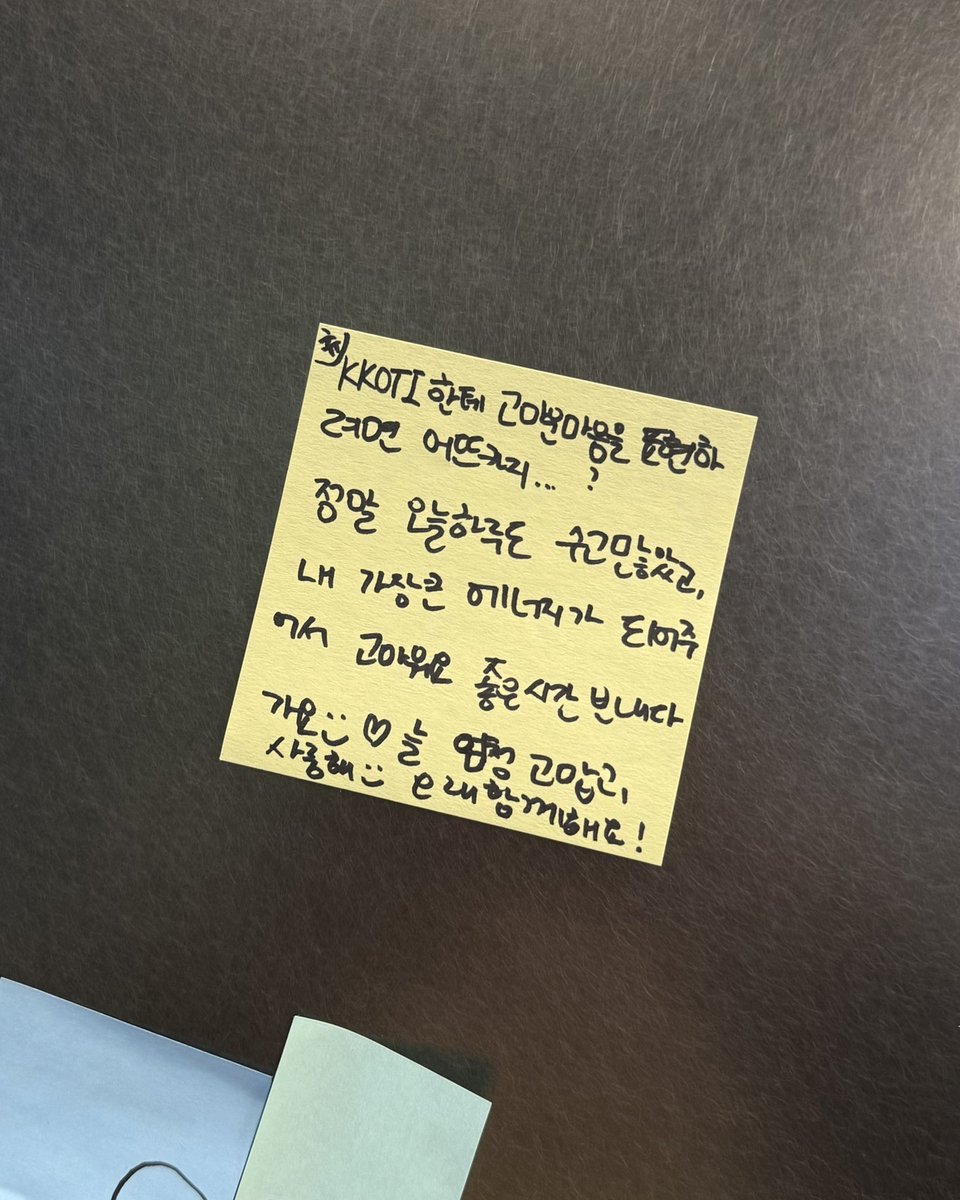 KKOTI 한테 고마운마음을 표현하
려면 어뜨카지... ?
정말 오늘하루도 수고많았고,
내 가장큰 에너지가 되어주
어서 고마워요 좋은시간 보내다
가요 :) ♡ 늘 엄청 고맙고,
사랑해 :) 오래함께해요!